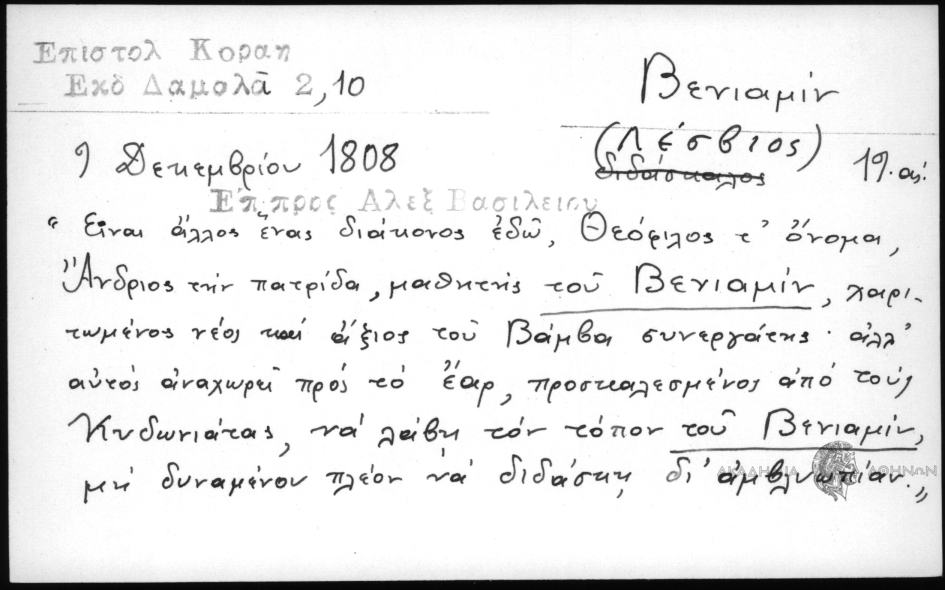 Επιστολ Κοραη
Εκδ Δαμολᾶ 2,10
Βενιαμίν
(Λέσβιος)
διδάσκαλος
19. αἰ.
9 Δεκεμβρίου 1808
Επ προς Αλεξ Βασιλειου
"Εἶναι ἄλλος ἕνας διάκονος ἐδῶ, Θεόφιλος τ' ὄνομα,
Ἄνδριος τὴν πατρίδα, μαθητὴς τοῦ Βενιαμίν, χαρι-
τωμένος νέος καὶ ἄξιος τοῦ Βάμβα συνεργάτης· ἀλλ'
αὐτὸς ἀναχωρεῖ πρὸς τὸ ἔαρ, προσκαλεσμένος ἀπό τούς
Κυδωνιάτας, νά λάβῃ τόν τόπον τοῦ Βενιαμίν,
μή δυναμένου πλέον νά διδάσκῃ δι' ἀμβλυωπίαν."
ΑΚΑΔΗΜΙΑ ΑΘΗΝΩΝ